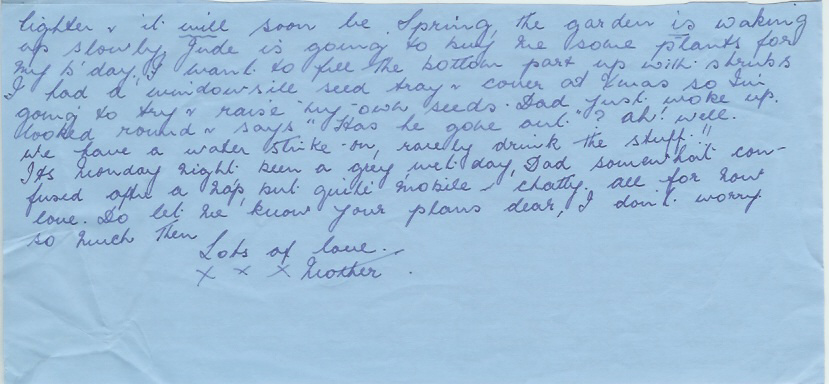 lighter & it will soon be Spring, the garden is waking
up slowly, Jude is going to buy me some plants for
my b'day, I want to fill the bottom part up with shrubs
I had a windowsill seed tray & cover at Xmas so I'm
going to try & raise my own seeds. Dad just woke up.
looked round & says "Has he gone out"? ah! well.
We have a water strike on, rarely drink the stuff!!
Its Monday night been a grey wet day, Dad somewhat con-
fused after a nap, but quite mobile & chatty. all for now
love. Do let me know your plans dear, I don't worry
so much then
Lots of love.
x x x Mother.